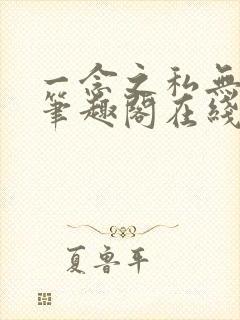 一念之私無
筆趣閣在綫
夏魯平